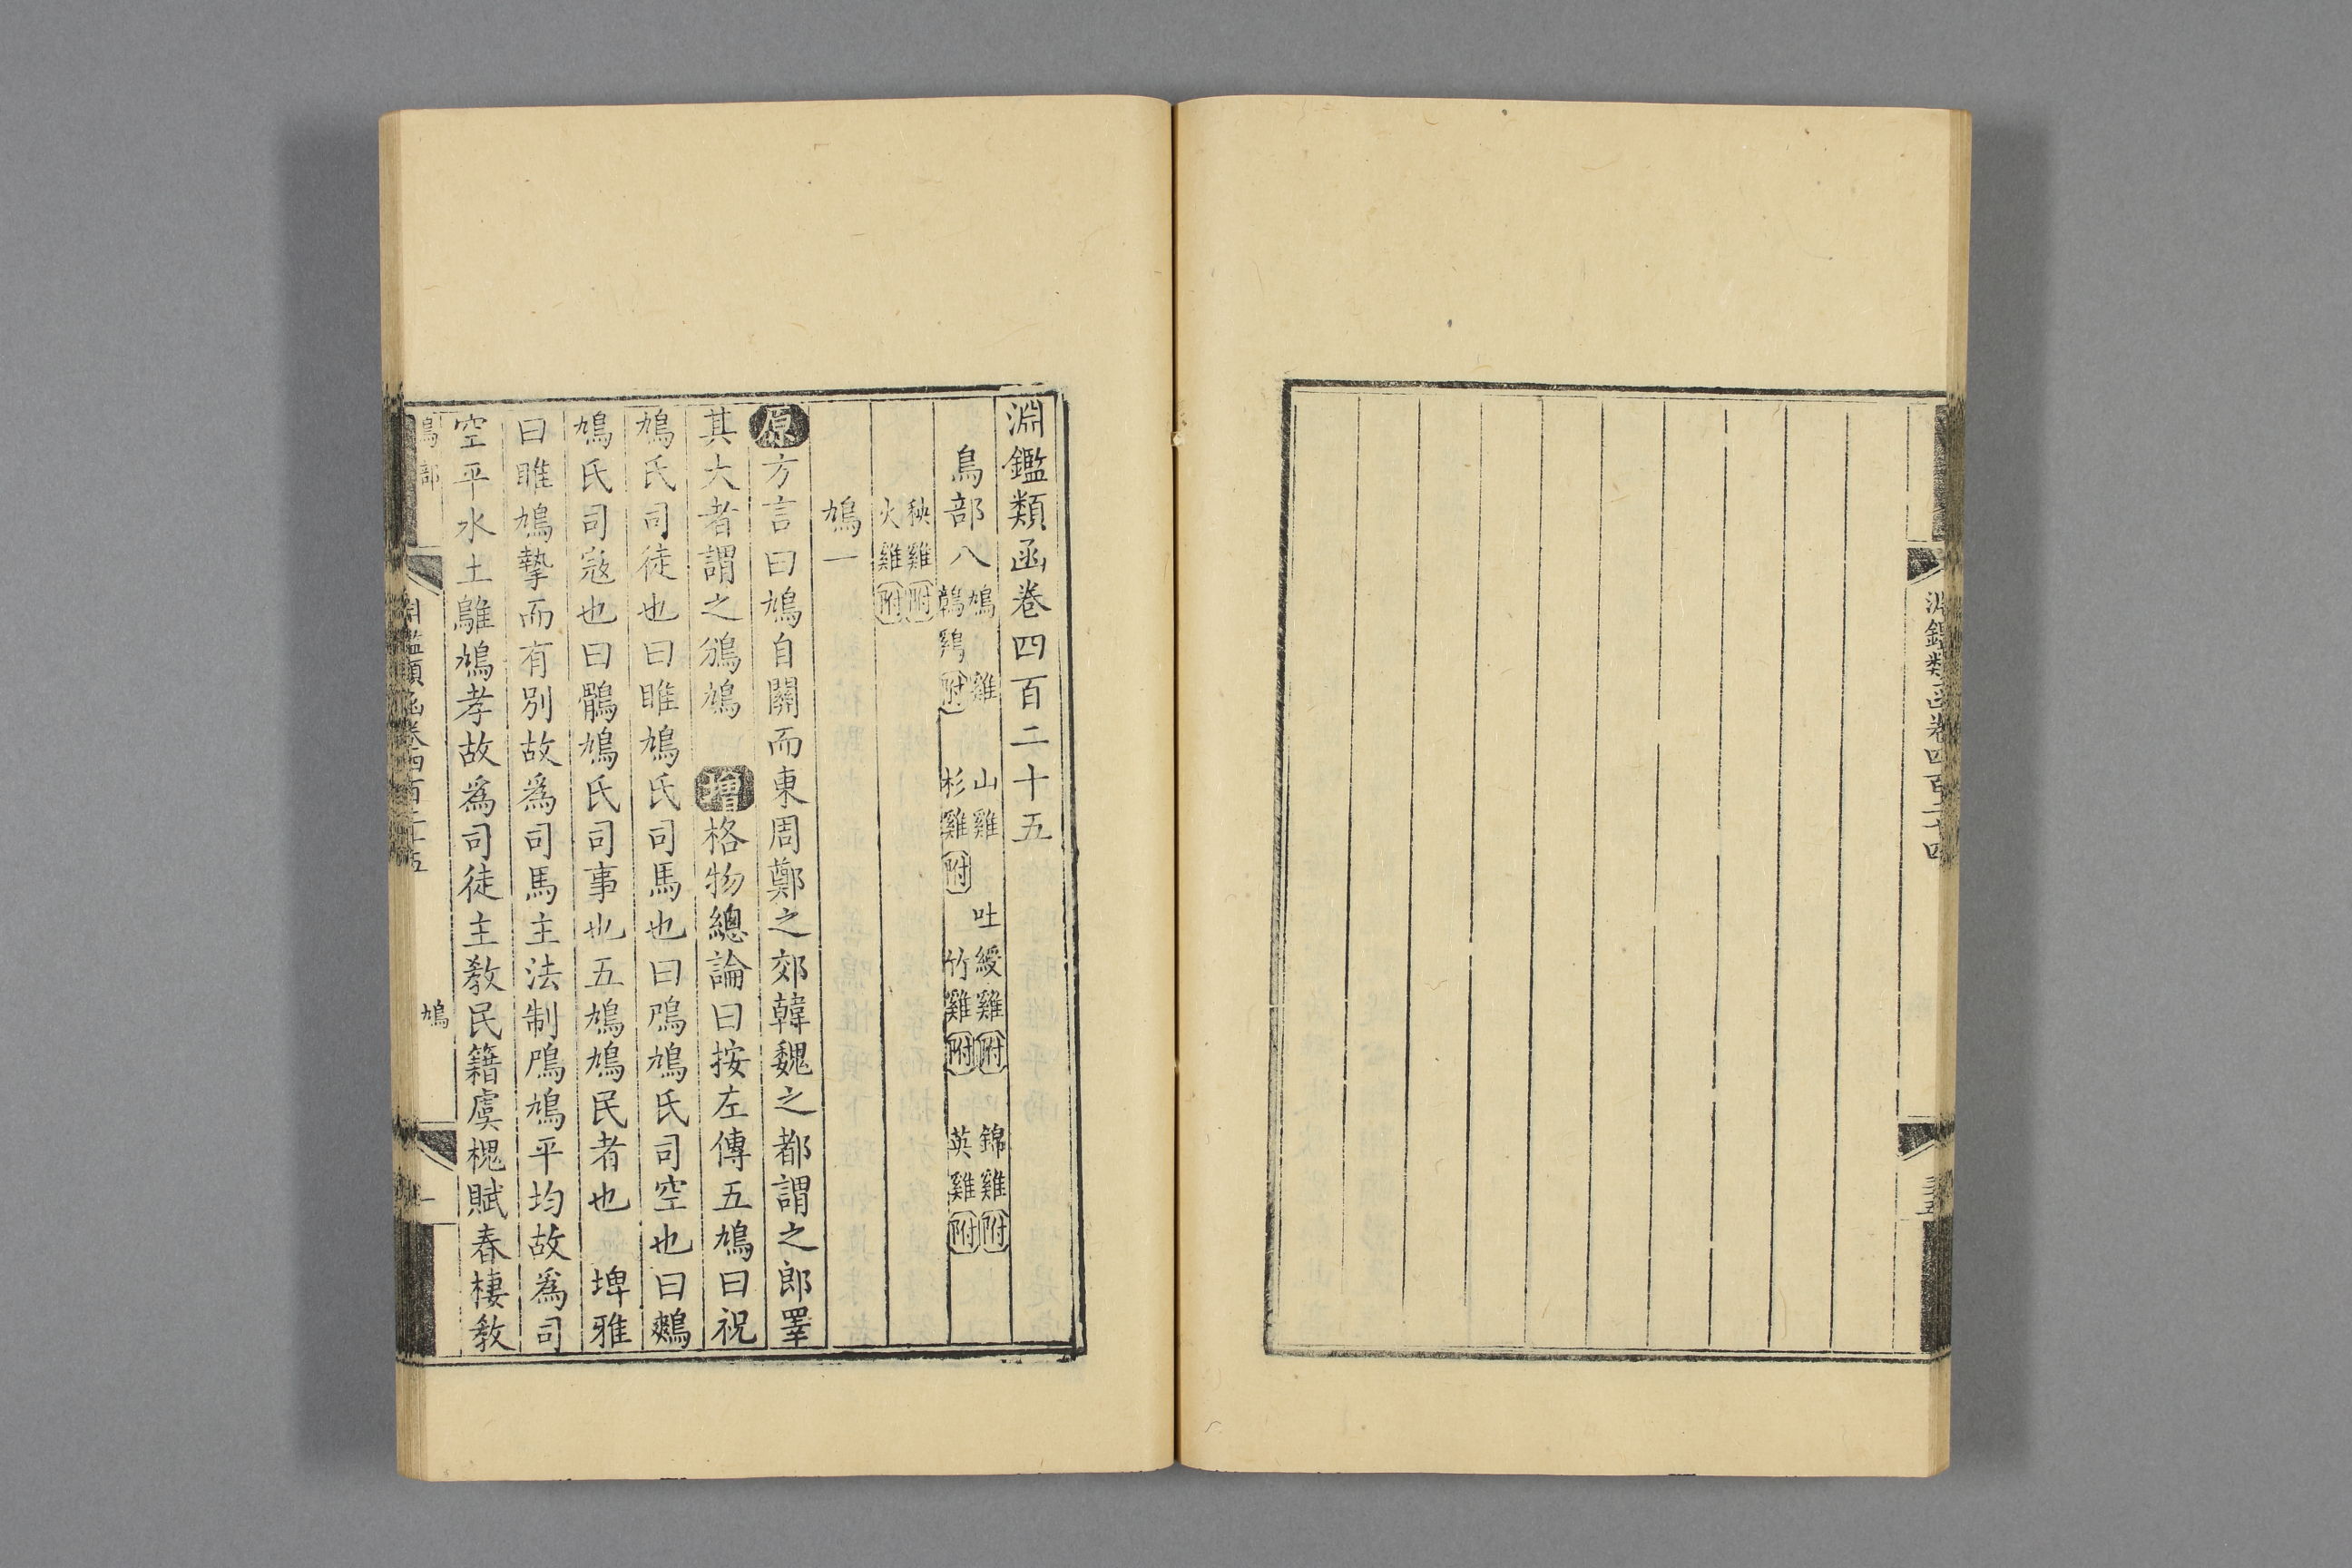 淵鑑類函卷四百二十四
三十五
淵鑑類函卷四百二十五
鳥部八 鳩 雉 山雞 吐綬雞附 錦雞附
鶉 附 杉雞附 竹雞附 英雞附
秧雞附
火雞附
鳩一
原方言曰鳩自關而東周鄭之郊韓魏之都謂之郎睪
其大者謂之鳻鳩 增格物總論曰按左傳五鳩曰祝
鳩氏司徒也曰雎鳩氏司馬也曰鳲鳩氏司空也曰鷞
鳩氏司寇也曰鶻鳩氏司事也五鳩鳩民者也 埤雅
曰雎鳩摯而有別故為司馬主法制鳲鳩平均故為司
空平水土鵻鳩孝故為司徒主教民籍虞槐賦春棲教
鳥部
淵鑑類函卷四百二十五
鳩
一